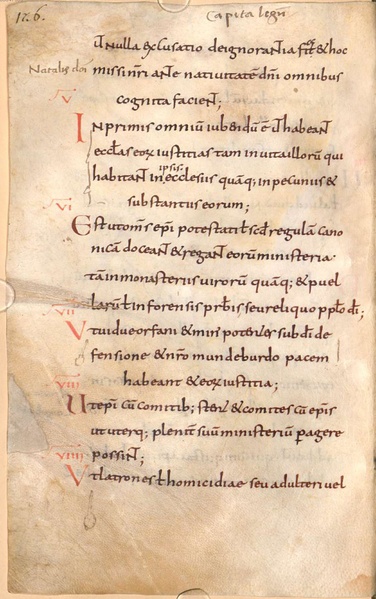 126. Capita legū
ut nulla excusatio deignorantia sit & hoc
Natalis dni missi nri ante nativitatē dni omnibus
cognita facient;
V
In primis omniū iubendū ē ut habeant
eccłas eorū iustitias tam in vita illorū qui
habitant in ipsis ecclesiis quāq; in pecuniis &
substantiis eorum;
VI
Est utomīs epī potestatē scd regulā cano
nicā doceant & regant eorū ministeria
tā in monasteriis virorū quāq; & puel
larū ł in forensis prbīs seu reliquo pplo dī;
VII
Ut viduae orfani & min potentes sub dī de
fensione & nrō mundeburdo pacem
habeant & eorū iustitia;
VIII
Ut epī cū comitib; stent & comites cū epīs
ut uterq; plenit suū ministeriū pagere
possint;
VIIII
Ut latrones ł homicidiae seu adulteri vel